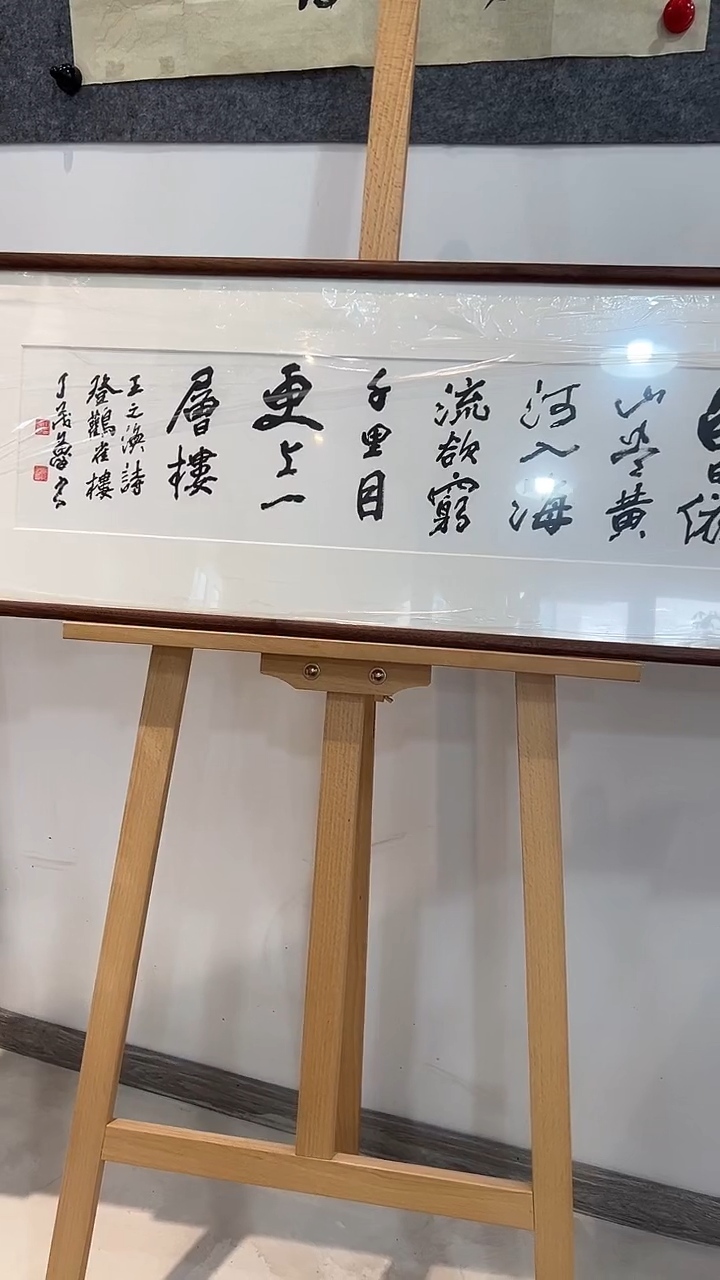 白日依
山尽黄
河入海
流欲窮
千里目
更上一
層樓
王之渙詩
登鸛雀樓
丁茂魯书